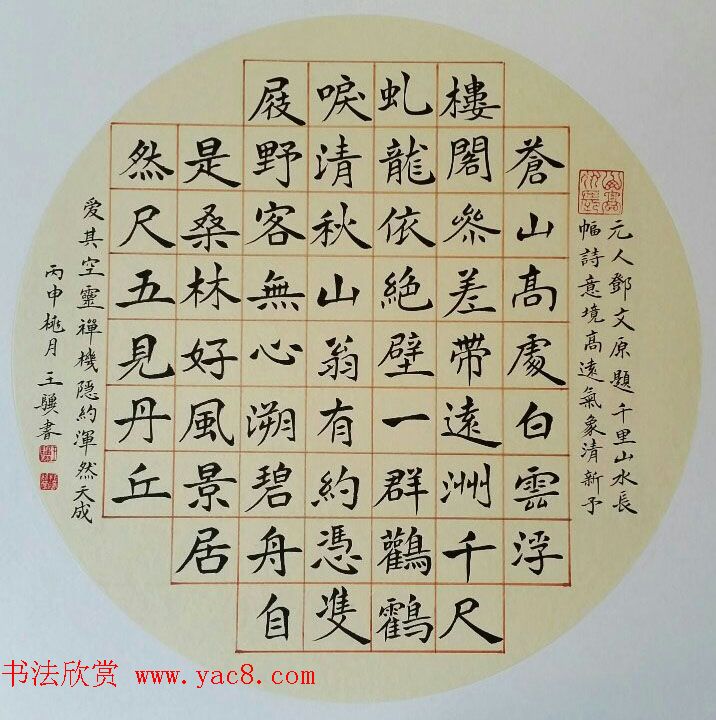 元人鄧文原題千里山水長
幅詩意境高遠氣象清新予
蒼山高處白雲浮
樓閣參差帶遠洲千尺
虬龍依絕壁一群鸛鶴
唳清秋山翁有約憑隻
屐野客無心溯碧舟自
是桑林好風景居
然尺五見丹丘
愛其空靈禪機隱約渾然天成
丙申桃月王驥書
书法欣赏 www.yac8.com